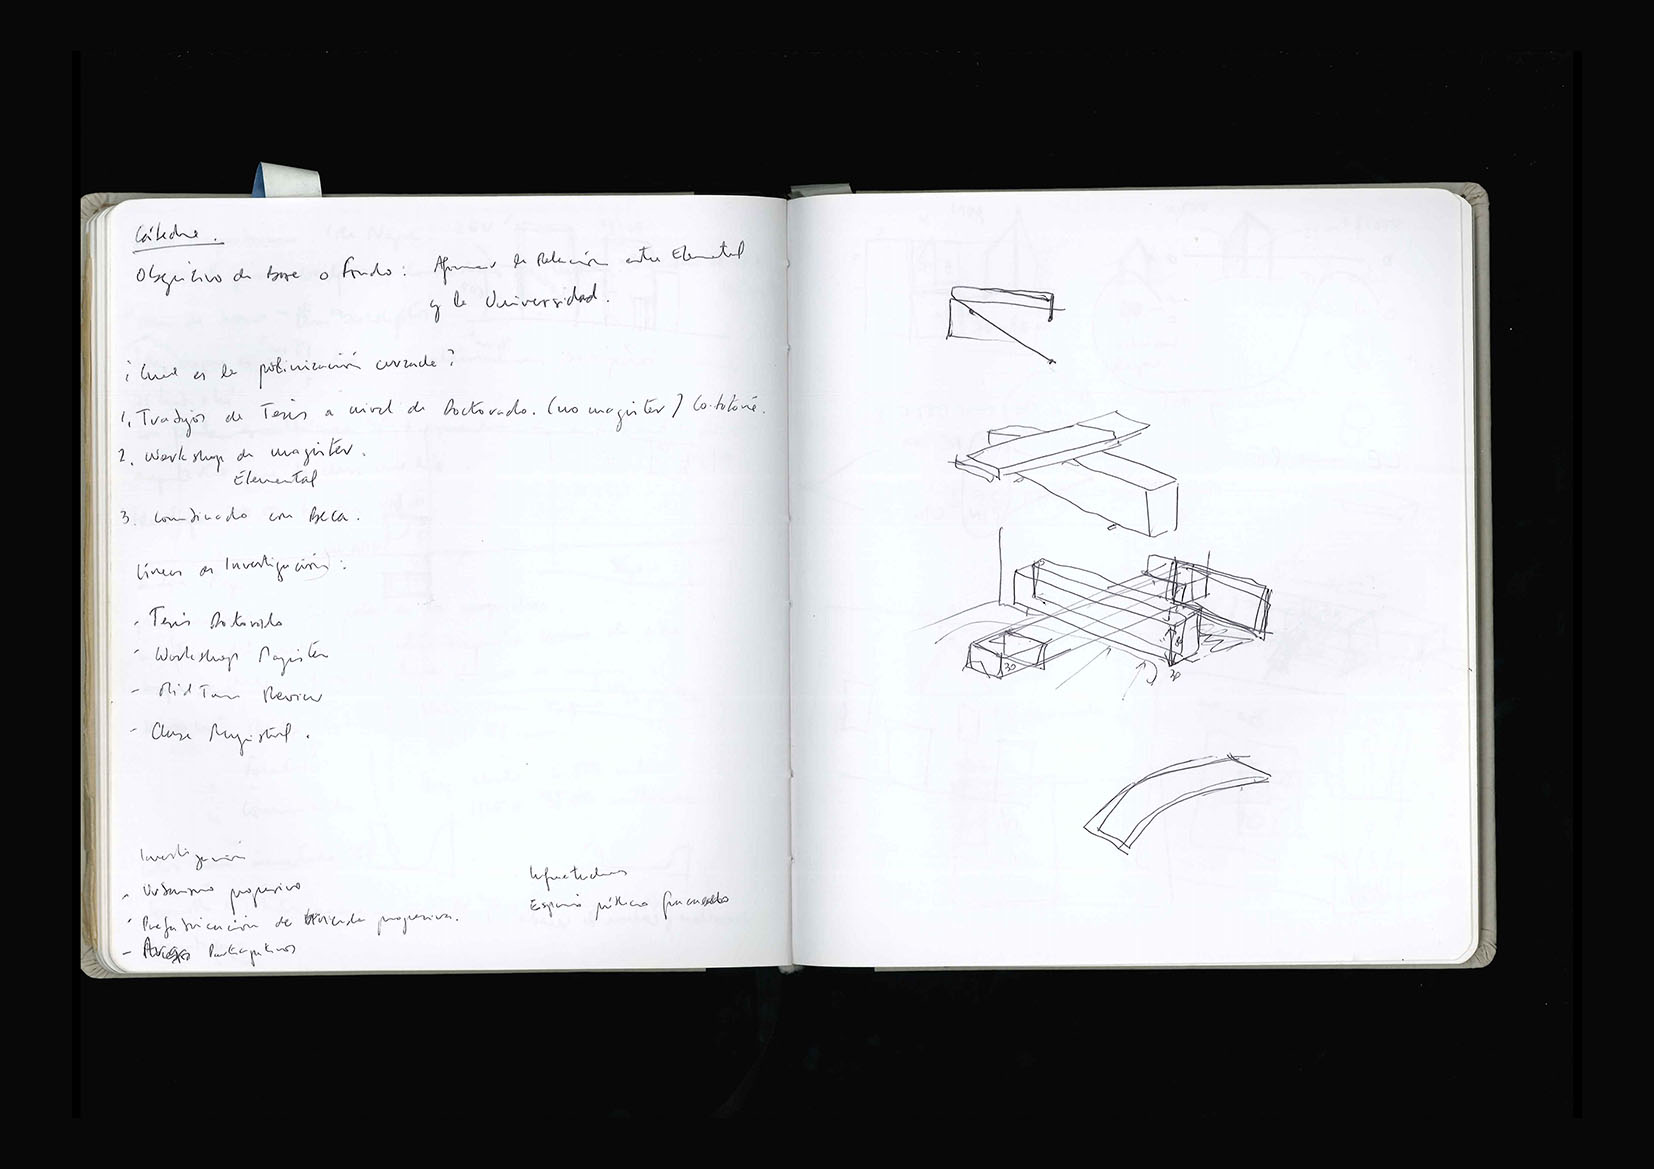 Cátedra.
Objetivo de Base o Fondo: Afianzar la Relación entre Elemental
y la Universidad.
¿Cual es la polinización cruzada?
1. Trabajos de Tesis a nivel de Doctorado. (no magister)
2. Workshop de magister.
Elemental
3. Combinado con Beca.
Líneas de Investigación:
- Tesis Doctorado
- Workshop Magister
- Mid Term Review
- Clase Magistral.
Investigación
- Urbanismo progresivo
- Prefabricación de vivienda progresiva.
- Participativos
Espacio público
30
30